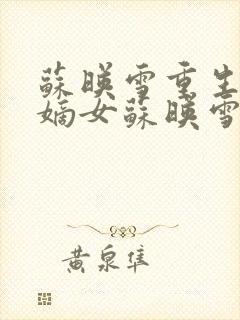 蘇暎雪重生
嫡女蘇暎雪
黃泉隼